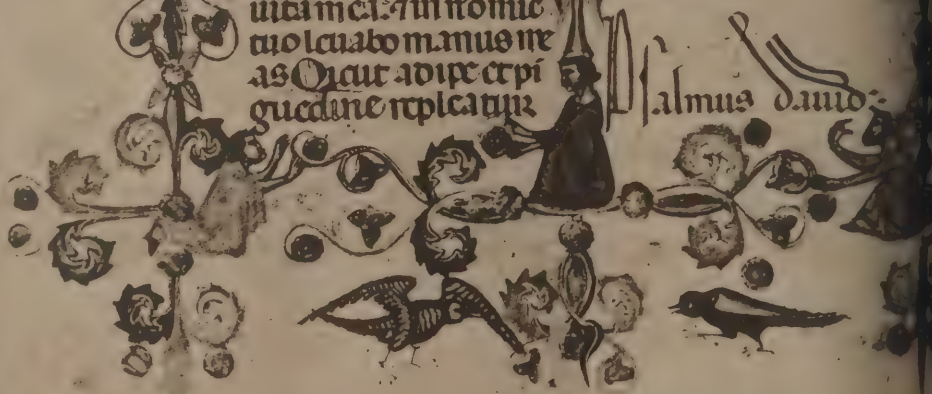 uita mea. ⁊ in nomine
tuo leuabo manus me
as Sicut adipe et pi
guedine repleatur
Psalmus dauid: